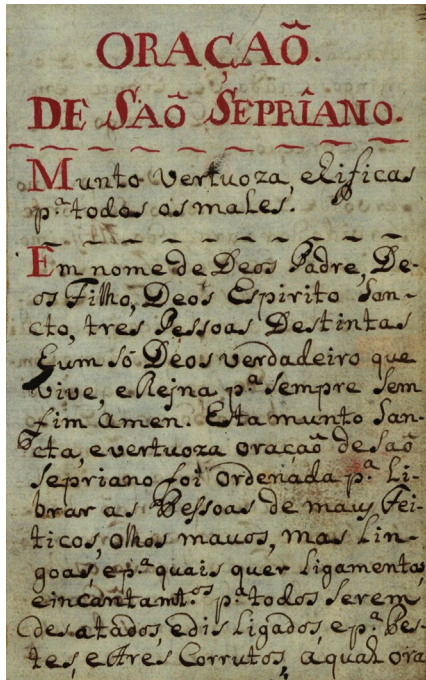 ORAÇAÕ.
DE SAÕ SEPRÎANO.
Munto vertuoza, elificas
p.ª todos os males.
Em nome de Deos Padre, De-
os Filho, Deos Espirito San-
cto, tres Pessoas Destintas
Eum só Deos verdadeiro que
vive, e Rejna p.ª sempre sem
fim amen. Esta munto San-
cta, e vertuoza oraçaõ de saõ
sepriano foi ordenada p.ª Li-
brar as Pessoas de maus Fei-
ticos, olhos mauos, mas Lin-
goas, e p.ª quais quer Ligamentos,
e incantamt.os p.ª todos serem
desatados, e dis Ligados, e p.ª Pes-
tes, e Ares Corrutos, a qual ora